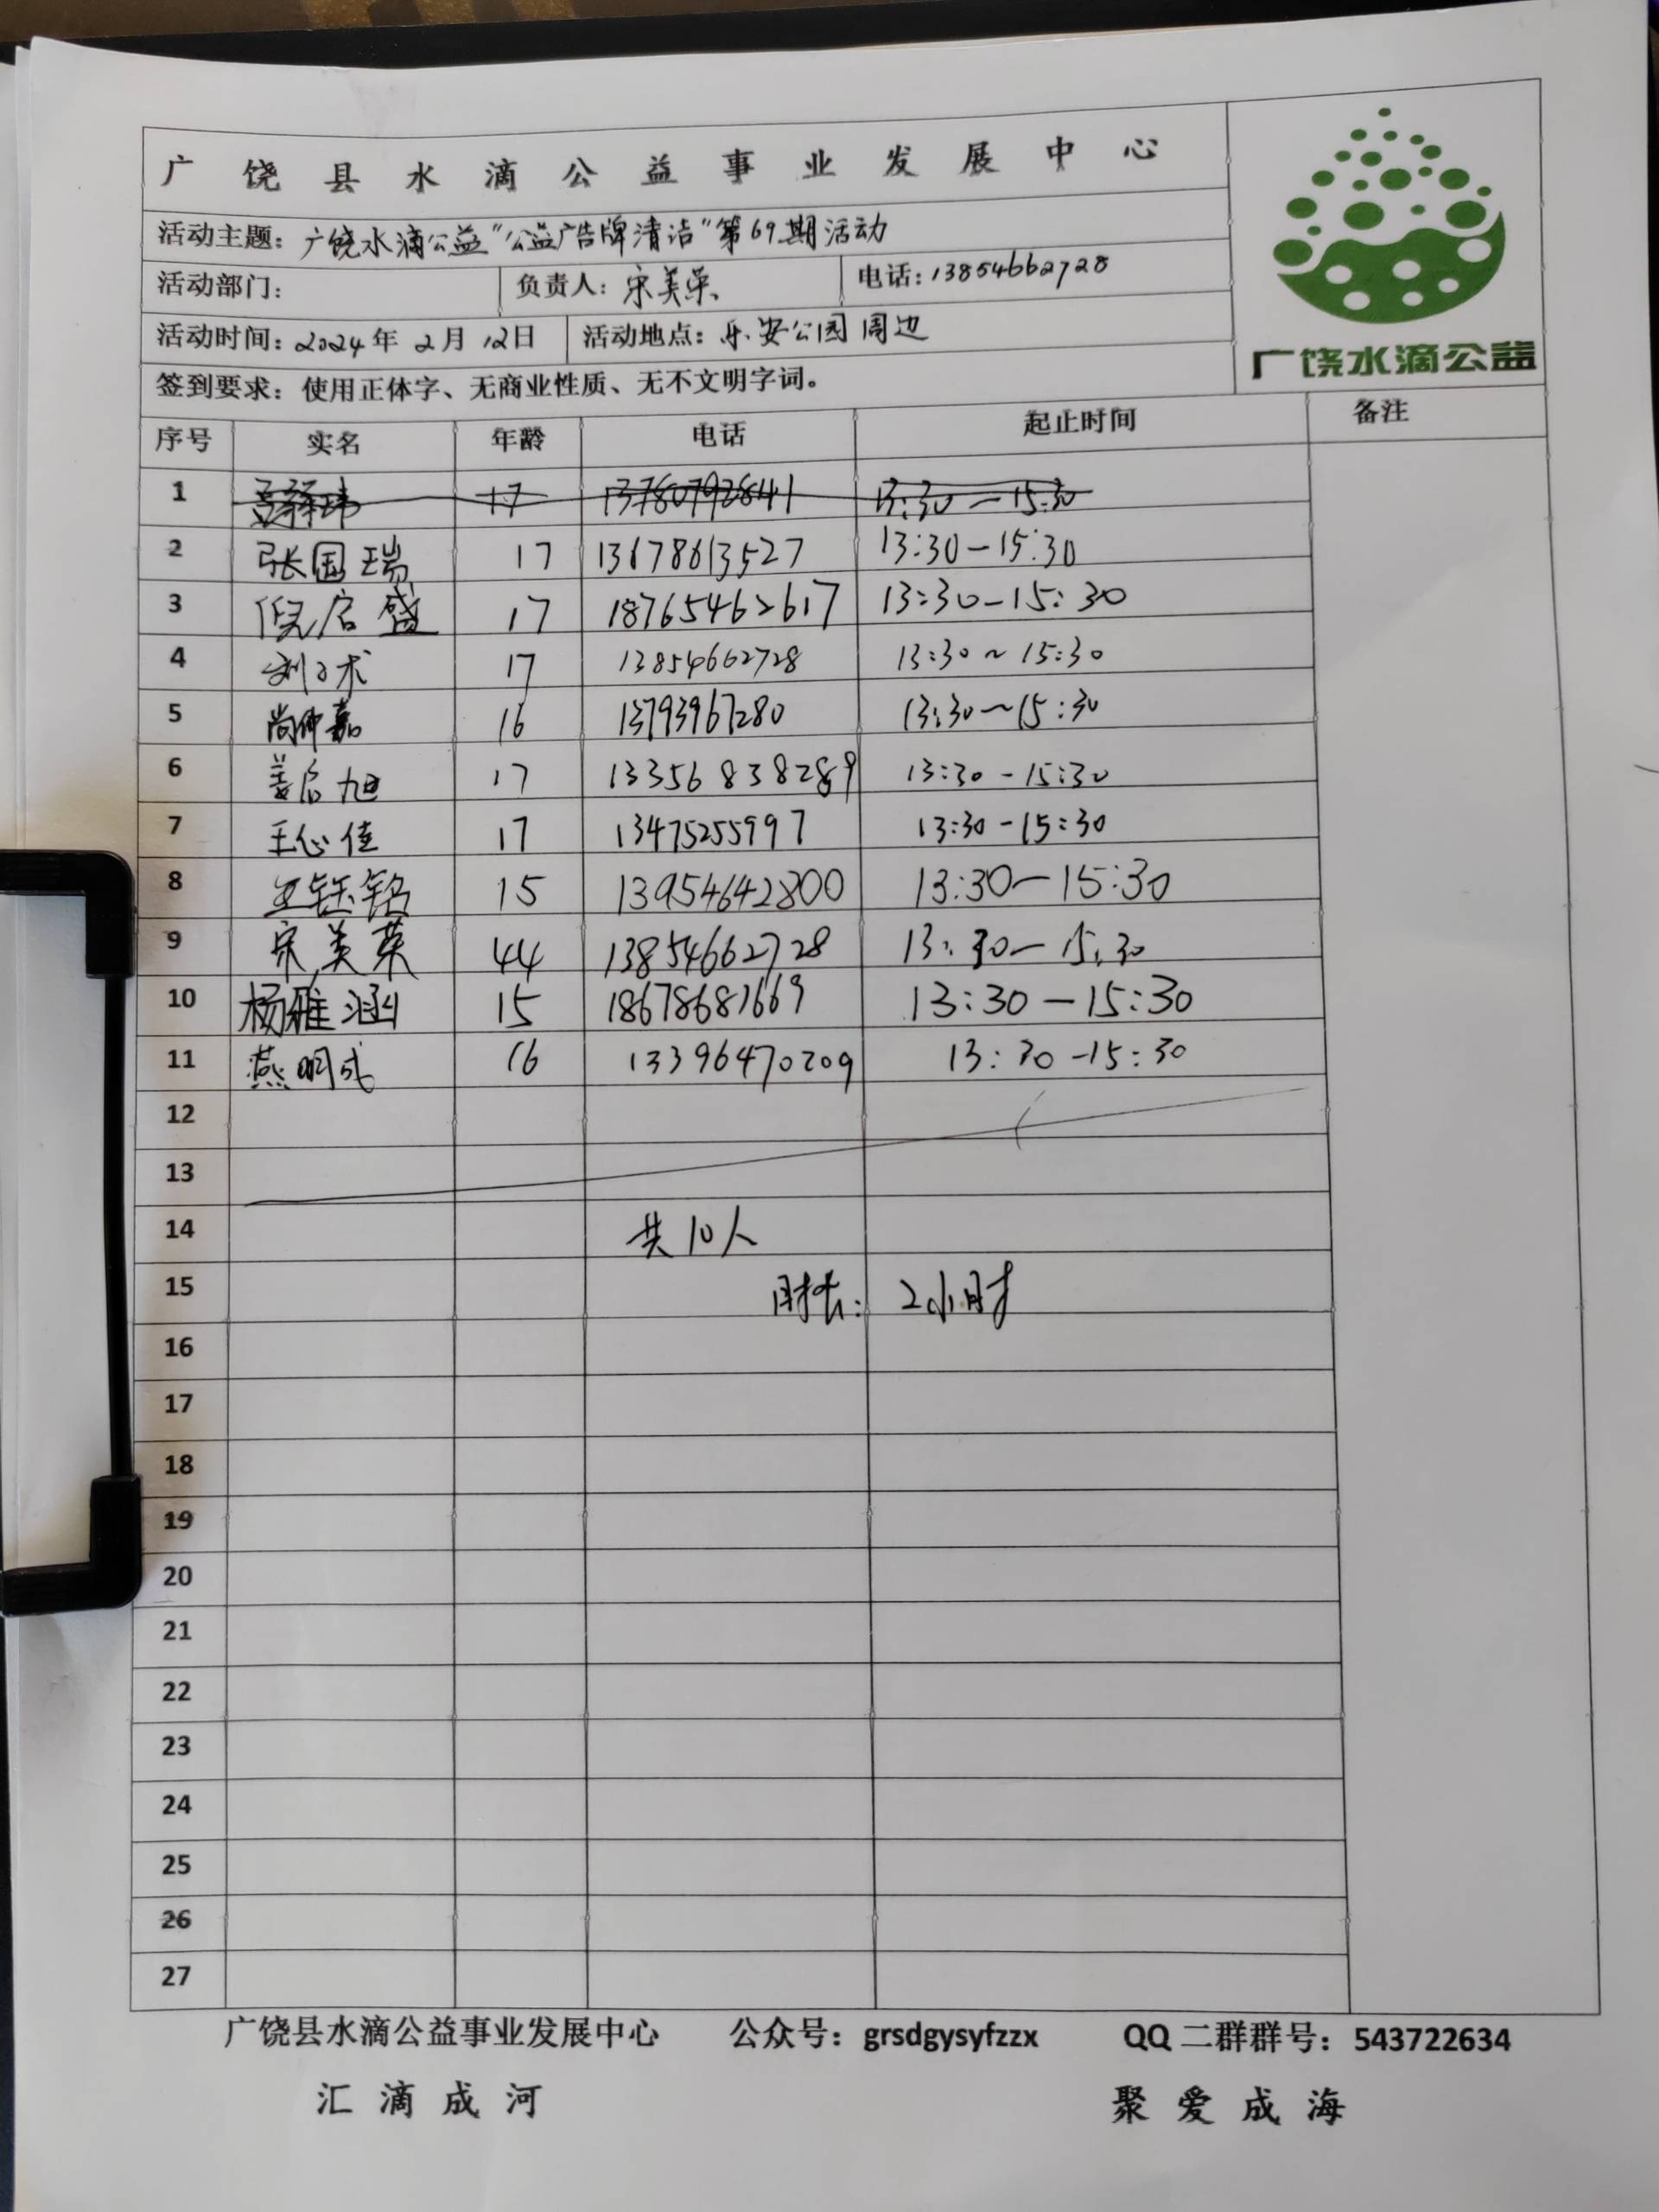 广饶县水滴公益事业发展中心
活动主题：广饶水滴公益"公益广告牌清洁"第69期活动
活动部门： 负责人：宋美荣 电话：13854662728
活动时间：2024年2月12日 活动地点：乐安公园周边
广饶水滴公益
签到要求：使用正体字、无商业性质、无不文明字词。
序号 实名 年龄 电话 起止时间 备注
1 17 13780792841 13:30—15:30
2 张国瑞 17 13678613527 13:30-15:30
3 倪启盛 17 18765462617 13:30-15:30
4 刘子术 17 13854662728 13:30~15:30
5 尚帅嘉 16 13793967280 13:30~15:30
6 姜启旭 17 13356838289 13:30-15:30
7 王心佳 17 13475255997 13:30-15:30
8 王钰铭 15 13954642800 13:30-15:30
9 宋美荣 44 13854662728 13:30-15:30
10 杨雅涵 15 18678681669 13:30-15:30
11 燕明成 16 13396470209 13:30-15:30
12
13
14 共10人
15 时长：2小时
16
17
18
19
20
21
22
23
24
25
26
27
广饶县水滴公益事业发展中心 公众号：grsdgysyfzzx QQ二群群号：543722634
汇滴成河 聚爱成海